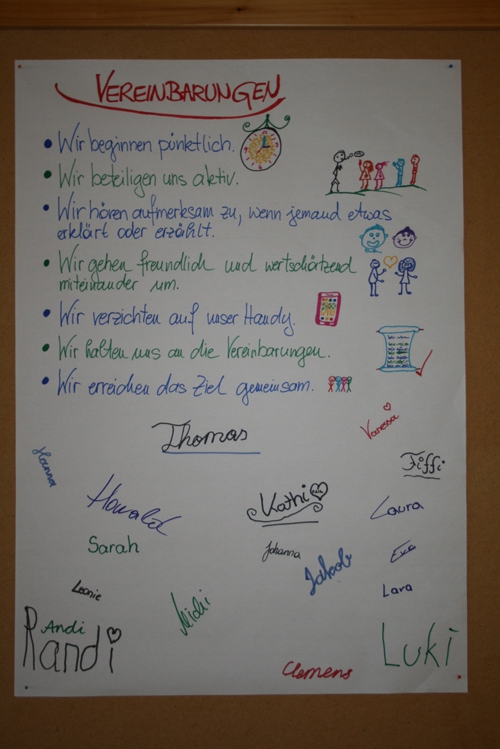 VEREINBARUNGEN
• Wir beginnen pünktlich.
• Wir beteiligen uns aktiv.
• Wir hören aufmerksam zu, wenn jemand etwas
erklärt oder erzählt.
• Wir gehen freundlich und wertschätzend
miteinander um.
• Wir verzichten auf unser Handy.
• Wir halten uns an die Vereinbarungen.
• Wir erreichen das Ziel gemeinsam.
Vanessa
Thomas
Hanna
Fiffi
Harald
Kathi
Laura
Sarah
Johanna
Eva
Jakob
Leonie
Lara
Michi
Andi
Randi
Luki
Clemens